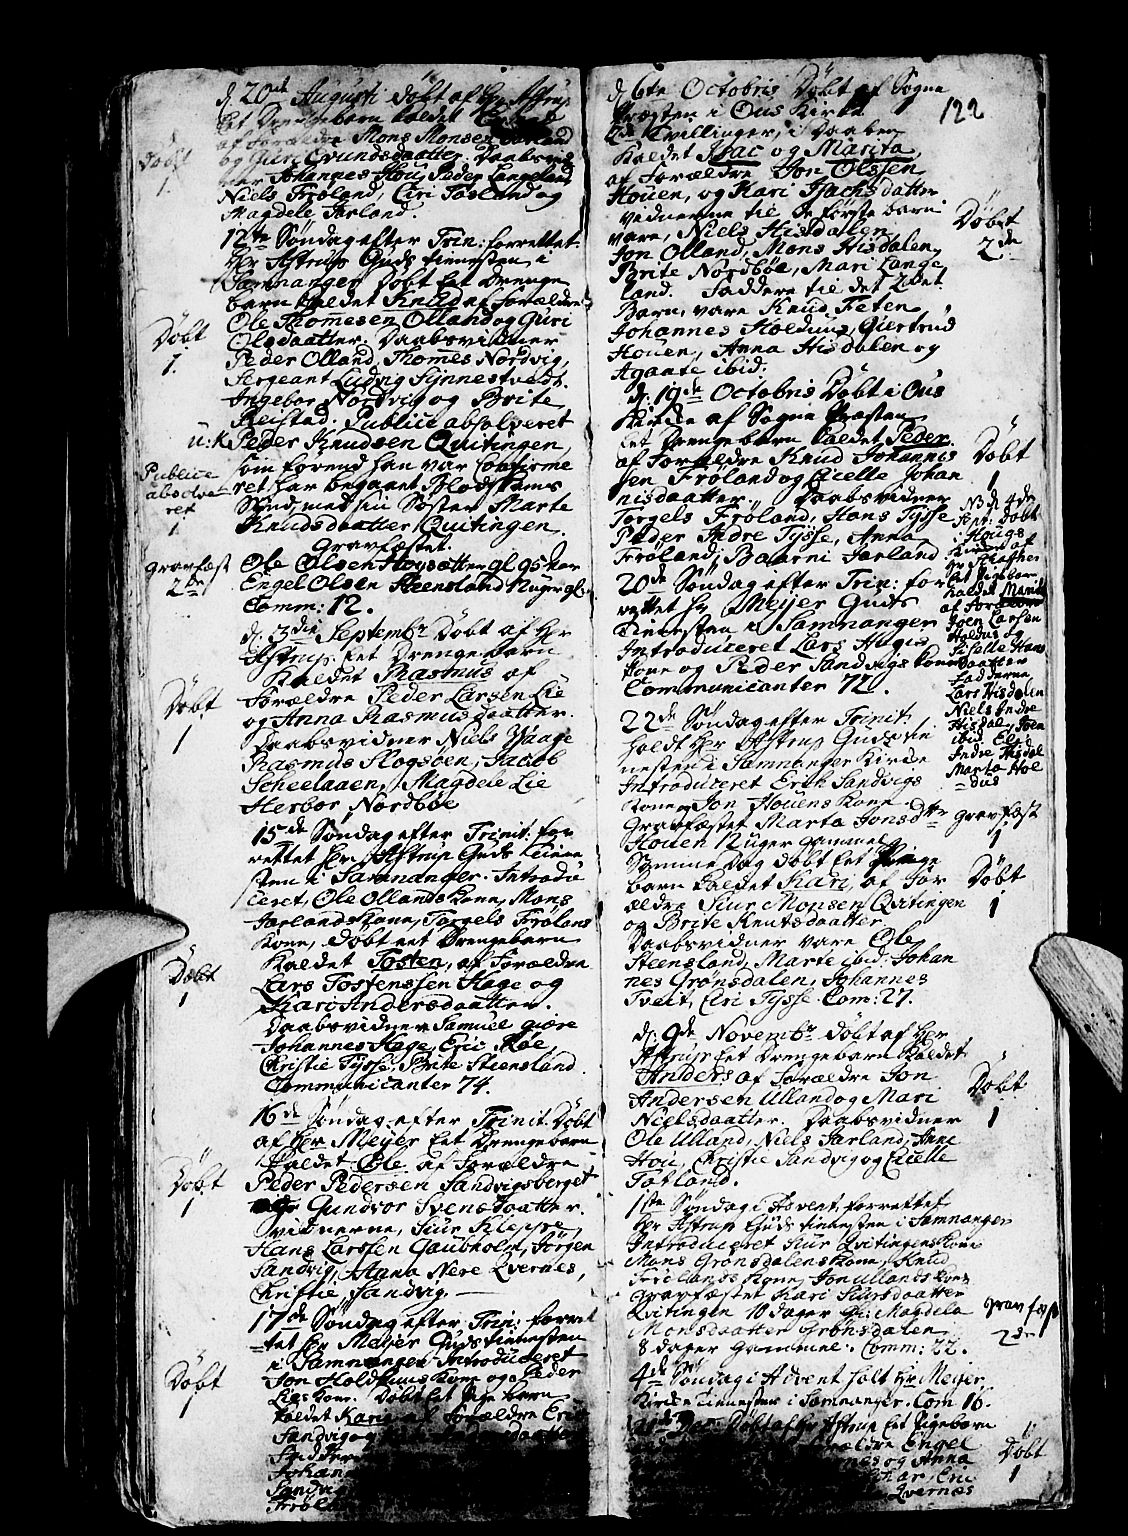 d. 20de Augusti Døbt af Hr Astrup
Eet Drengebarn kaldet
af forældre Mons Monsen
og Guri Evundsdaatter. Daabsvid
Johannes Hou, Peder Langeland,
Niels Frøland, Ciri Tosland og
Magdele Jarland.
Døbt
1.
12te Søndag efter Trin: forrettet
Hr Astrup Guds tienesten i
Samnanger Døbt Eet Drenge
barn kaldet Knud af Forældre
Ole Thomesen Olland og Guri
Olsdaatter. Daabsvidner
Peder Olland, Thomes Nordvig,
Sergeant Ludvig Synnestvedt.
Ingebor Nordvig og Brite
Reistad. Publice absolveret
Døbt
1.
u:k Peder Knudsen Quitingen,
som forend han var confirme
ret har begaaet Blodskams
Synd, med sin Søster Marte
Knudsdaatter Quitingen.
Publice
absolve
ret
1
Gravfæstet.
Ole Olsen Høysætter gl 95 Aar
Engel Olsen Steensland 12 uger gl.
Comm: 12.
gravfæst
2de
d: 3die Septembr Døbt af Hr
Astrup Eet Drengebarn
Kaldet Rasmus af
Forældre Peder Larsen Lie
og Anna Rasmusdaatter.
Daabsvidner Niels Waage
Rasmus Slogsoen, Jacob
Scheelaaen, Magdele Lie
Herbor Nordbøe
Døbt
1
15de Søndag efter Trinit: for
rettet Hr Astrup Guds tiene
sten i Samnanger. Introdu
ceret, Ole Ollands Kone, Mons
Jarlands Kone, Torgels Frølans
Kone, Døbt eet Drengebarn
Kaldet Tosten, af Forældre
Lars Tostenssen Hage og
Kari Andersdaatter.
Daabsvidner Samuel giøre
Johannes Hage, Eric Røe,
Christie Tysse, Brite Steensland
Communicanter 74.
Døbt
1
16de Søndag efter Trinit. Døbt
af Hr Meyer Eet Drengebarn
Kaldet Ole af Forældre
Peder Pedersen Sandvigsberget
og Gundvor Svensdaatter.
vidnerne, Siur Kleppe,
Hans Larssen Gaupholm, Jörgen
Sandvig, Anna Nere Qvernes,
Christie Sandvig.
Døbt
1
17de Søndag efter Trin: forret
tet Hr Meyer Guds tienesten
i Samnanger Introduceret
Jon Holdhuus Kone og Peder
Lies Kone. Døbt Eet Pige barn
kaldet Kari af Forældre Eric
Sandvig og
Fadder
Johan
Sandvig
Frøla
Døbt
1
122
d. 6te Octobris Døbt af Sogne
Præsten i Ous Kirke
2de Tvillinger, i Daaben
Kaldet Isac og Marita,
af Forældre Jon Olssen
Houen, og Kari Isachsdatter
vidnerne til de første barn
vare, Niels Hisdalen
Jon Olland, Mons Hisdalen,
Brite Nordbøe, Mari Lange
land. Faddere til det 2det
Barn, vare Knud Feten
Johannes Holdhuus, Giertrud
Houen, Anna Hisdalen og
Agaate ibid:
Døbt
2de
d. 19de Octobris Døbt i Ous
Kirke af Sogne Præsten
Eet Drengebarn kaldet Peder
af Forældre Knud Johannis
sen Frøland og Cicelle Johan
nisdaatter. Daabsvidner
Torgels Frøland, Hans Tysse
Peder Andre Tysse, Anna
Frøland, Baarni Jarland
Døbt
1
NB d 4de
Sept: Døbt
i Hougs
Kirke af
Hr Schafner
Eet Pigebar
kaldet Marite
af Forældre
Joen Larsen
Holdus og
Siselle Hans
daatter
Fadderne
Lars Hisdalen
Niels Indre
Hisdal, Joen
ibid Eli
Indre Hisdal
Marta Hol
dus
20de Søndag efter Trin: for
rettet Hr Meijer Guds
tienesten i Samnanger
Introduceret Lars Hages
Kone og Peder Sandvigs Kone
Communicanter 72.
22de Søndag efter Trinit:
holdt Hr Astrup Guds tie
nesten i Samnanger Kirke
Introduceret Erich Sandvigs
Kone og Jon Houens Kone.
Gravfæstet Marta Jonsdtr
Houen 12 uger gammel
gravfæst
1
Samme Dag døbt Eet Pige
barn kaldet Kari, af For
ældre Siur Monsen Qvitingen
og Brite Knutsdaatter
Daabsvidner vare Ole
Steensland, Marte ibid: Johan
nes Grønsdalen, Johannes
Tveit, Ciri Tysse. Com: 27.
Døbt
1
d. 9de Novembr døbt af Hr
Astrup Eet Drengebarn Kaldet
Anders af Forældre Jon
Andersen Ulland og Mari
Nielsdaatter. Daabsvidner
Ole Ulland, Niels Jarland, Anne
Hou, Christie Sandvig og Cicelle
Totland.
Døbt
1
1ste Søndag i Advent, forrettet
Hr Astrup Guds tienesten i Samnanger
Introduceret Siur Qvitingens Kone
Mons Grønsdalens Kone, Knud
Frølands Kone, Jon Ullands Kone
Gravfæstet Kari Siursdaatter
Qvitingen 10 dager gl: Magdela
Monsdaatter Grønsdalen
8 dager gammel. Comm: 22.
gravfæst
2de
4de Søndag i Advent holt Hr Meijer
Kirke tienesten i Samnanger. Com 16.
Døbt af Hr Astrup Eet Pigebarn
Forældre Engel
og Anna
Eric
Qvernes
Døbt
1